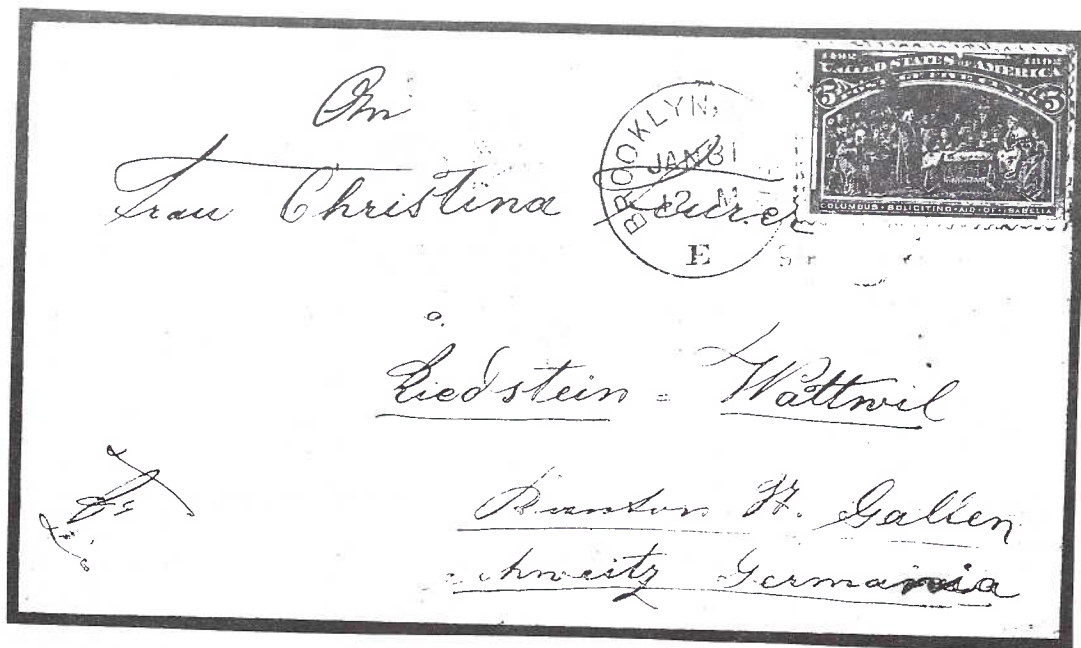 1492 1892
UNITED STATES OF AMERICA
5 5
COLUMBUS SOLICITING AID OF ISABELLA
BROOKLYN,
JAN 31
12 M
E
An
Frau Christina
Riedstein = Wattwil
Kanton St. Gallen
Schweitz Germania